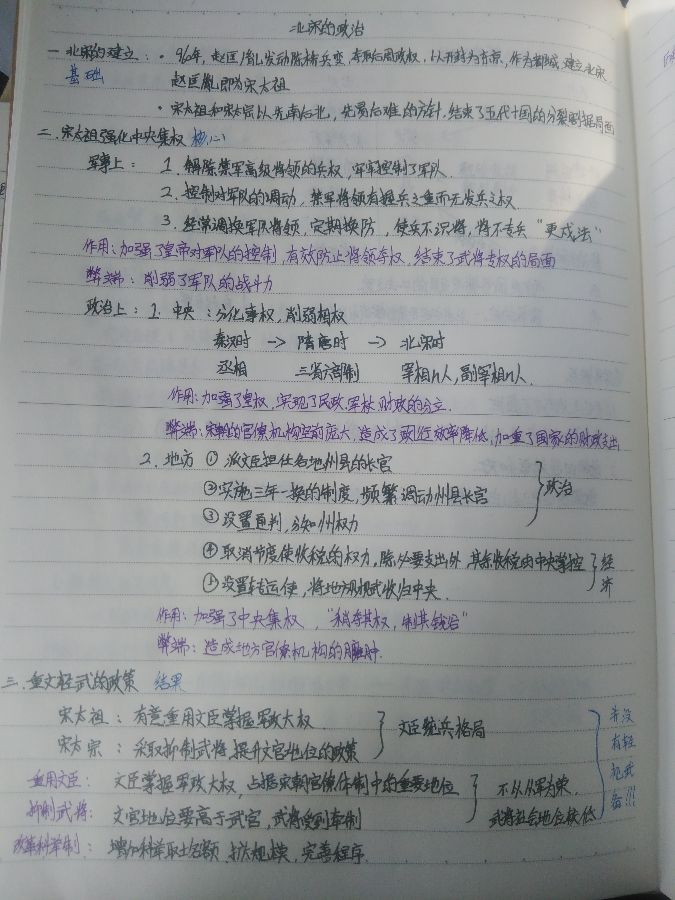 北宋的政治
一.北宋的建立：·960年，赵匡胤发动陈桥兵变，夺取后周政权，以开封为东京，作为都城，建立北宋
基础 赵匡胤即为宋太祖
·宋太祖和宋太宗以先南后北，先易后难的方针，结束了五代十国的分裂割据局面
二.宋太祖强化中央集权 核心
军事上：1.解除禁军高级将领的兵权，牢牢控制了军队.
2.控制对军队的调动，禁军将领有握兵之重而无发兵之权.
3.经常调换军队将领，定期换防，使兵不识将，将不专兵“更戍法”
作用：加强了皇帝对军队的控制，有效防止将领夺权，结束了武将专权的局面
弊端：削弱了军队的战斗力
政治上：1.中央：分化事权，削弱相权
秦汉时 → 隋唐时 → 北宋时
丞相 三省六部制 宰相n人，副宰相n人.
作用：加强了皇权，实现了民政.军权.财政的分立.
弊端：宋朝的官僚机构空前庞大，造成了政行效率降低，加重了国家的财政支出
2.地方 ①派文臣担任各地州县的长官
②实施三年一换的制度，频繁调动州县长官 政治
③设置通判，分知州权力
④取消节度使收税的权力，除必要支出外，其余收税由中央掌控 经济
⑤设置转运使，将地方财赋收归中央.
作用：加强了中央集权，“稍夺其权，制其钱谷”
弊端：造成地方官僚机构的臃肿.
三.重文轻武的政策 结果
宋太祖：有意重用文臣掌握军政大权 文臣统兵格局
宋太宗：采取抑制武将，提升文官地位的政策
并没有轻视武备!!!
重用文臣：文臣掌握军政大权，占据宋朝官僚体制中的重要地位 不以从军为荣.
抑制武将：文官地位要高于武官，武将受到牵制 武将社会地位较低
改革科举制：增加科举取士名额，扩大规模，完善程序.